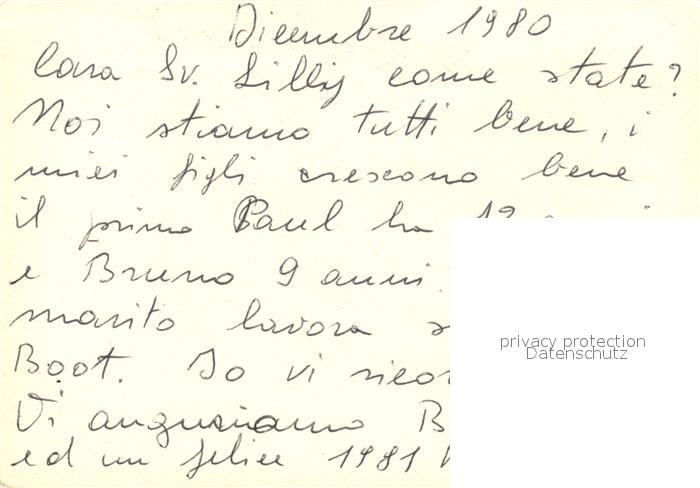 Dicembre 1980
Cara Sv. Lilly come state?
Noi stiamo tutti bene, i
miei figli crescono bene
il primo Paul ha 12
e Bruno 9 anni.
marito lavora
Boot. Io vi
Vi auguriamo B
ed un felice 1981
privacy protection
Datenschutz